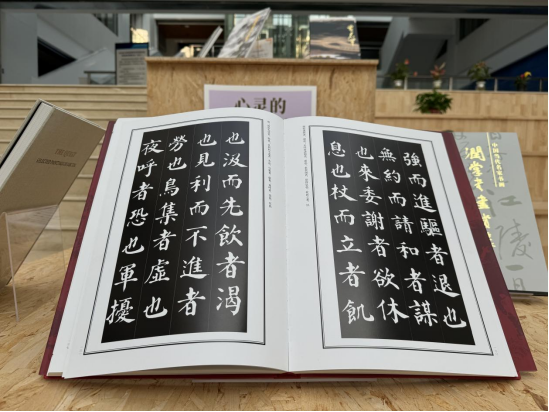 心灵的
強而進驅者退也
無約而請和者謀
也來委謝者欲休
息也杖而立者飢
也汲而先飲者渴
也見利而不進者
勞也鳥集者虛也
夜呼者恐也軍擾
中国当代名家书画
江陵一日